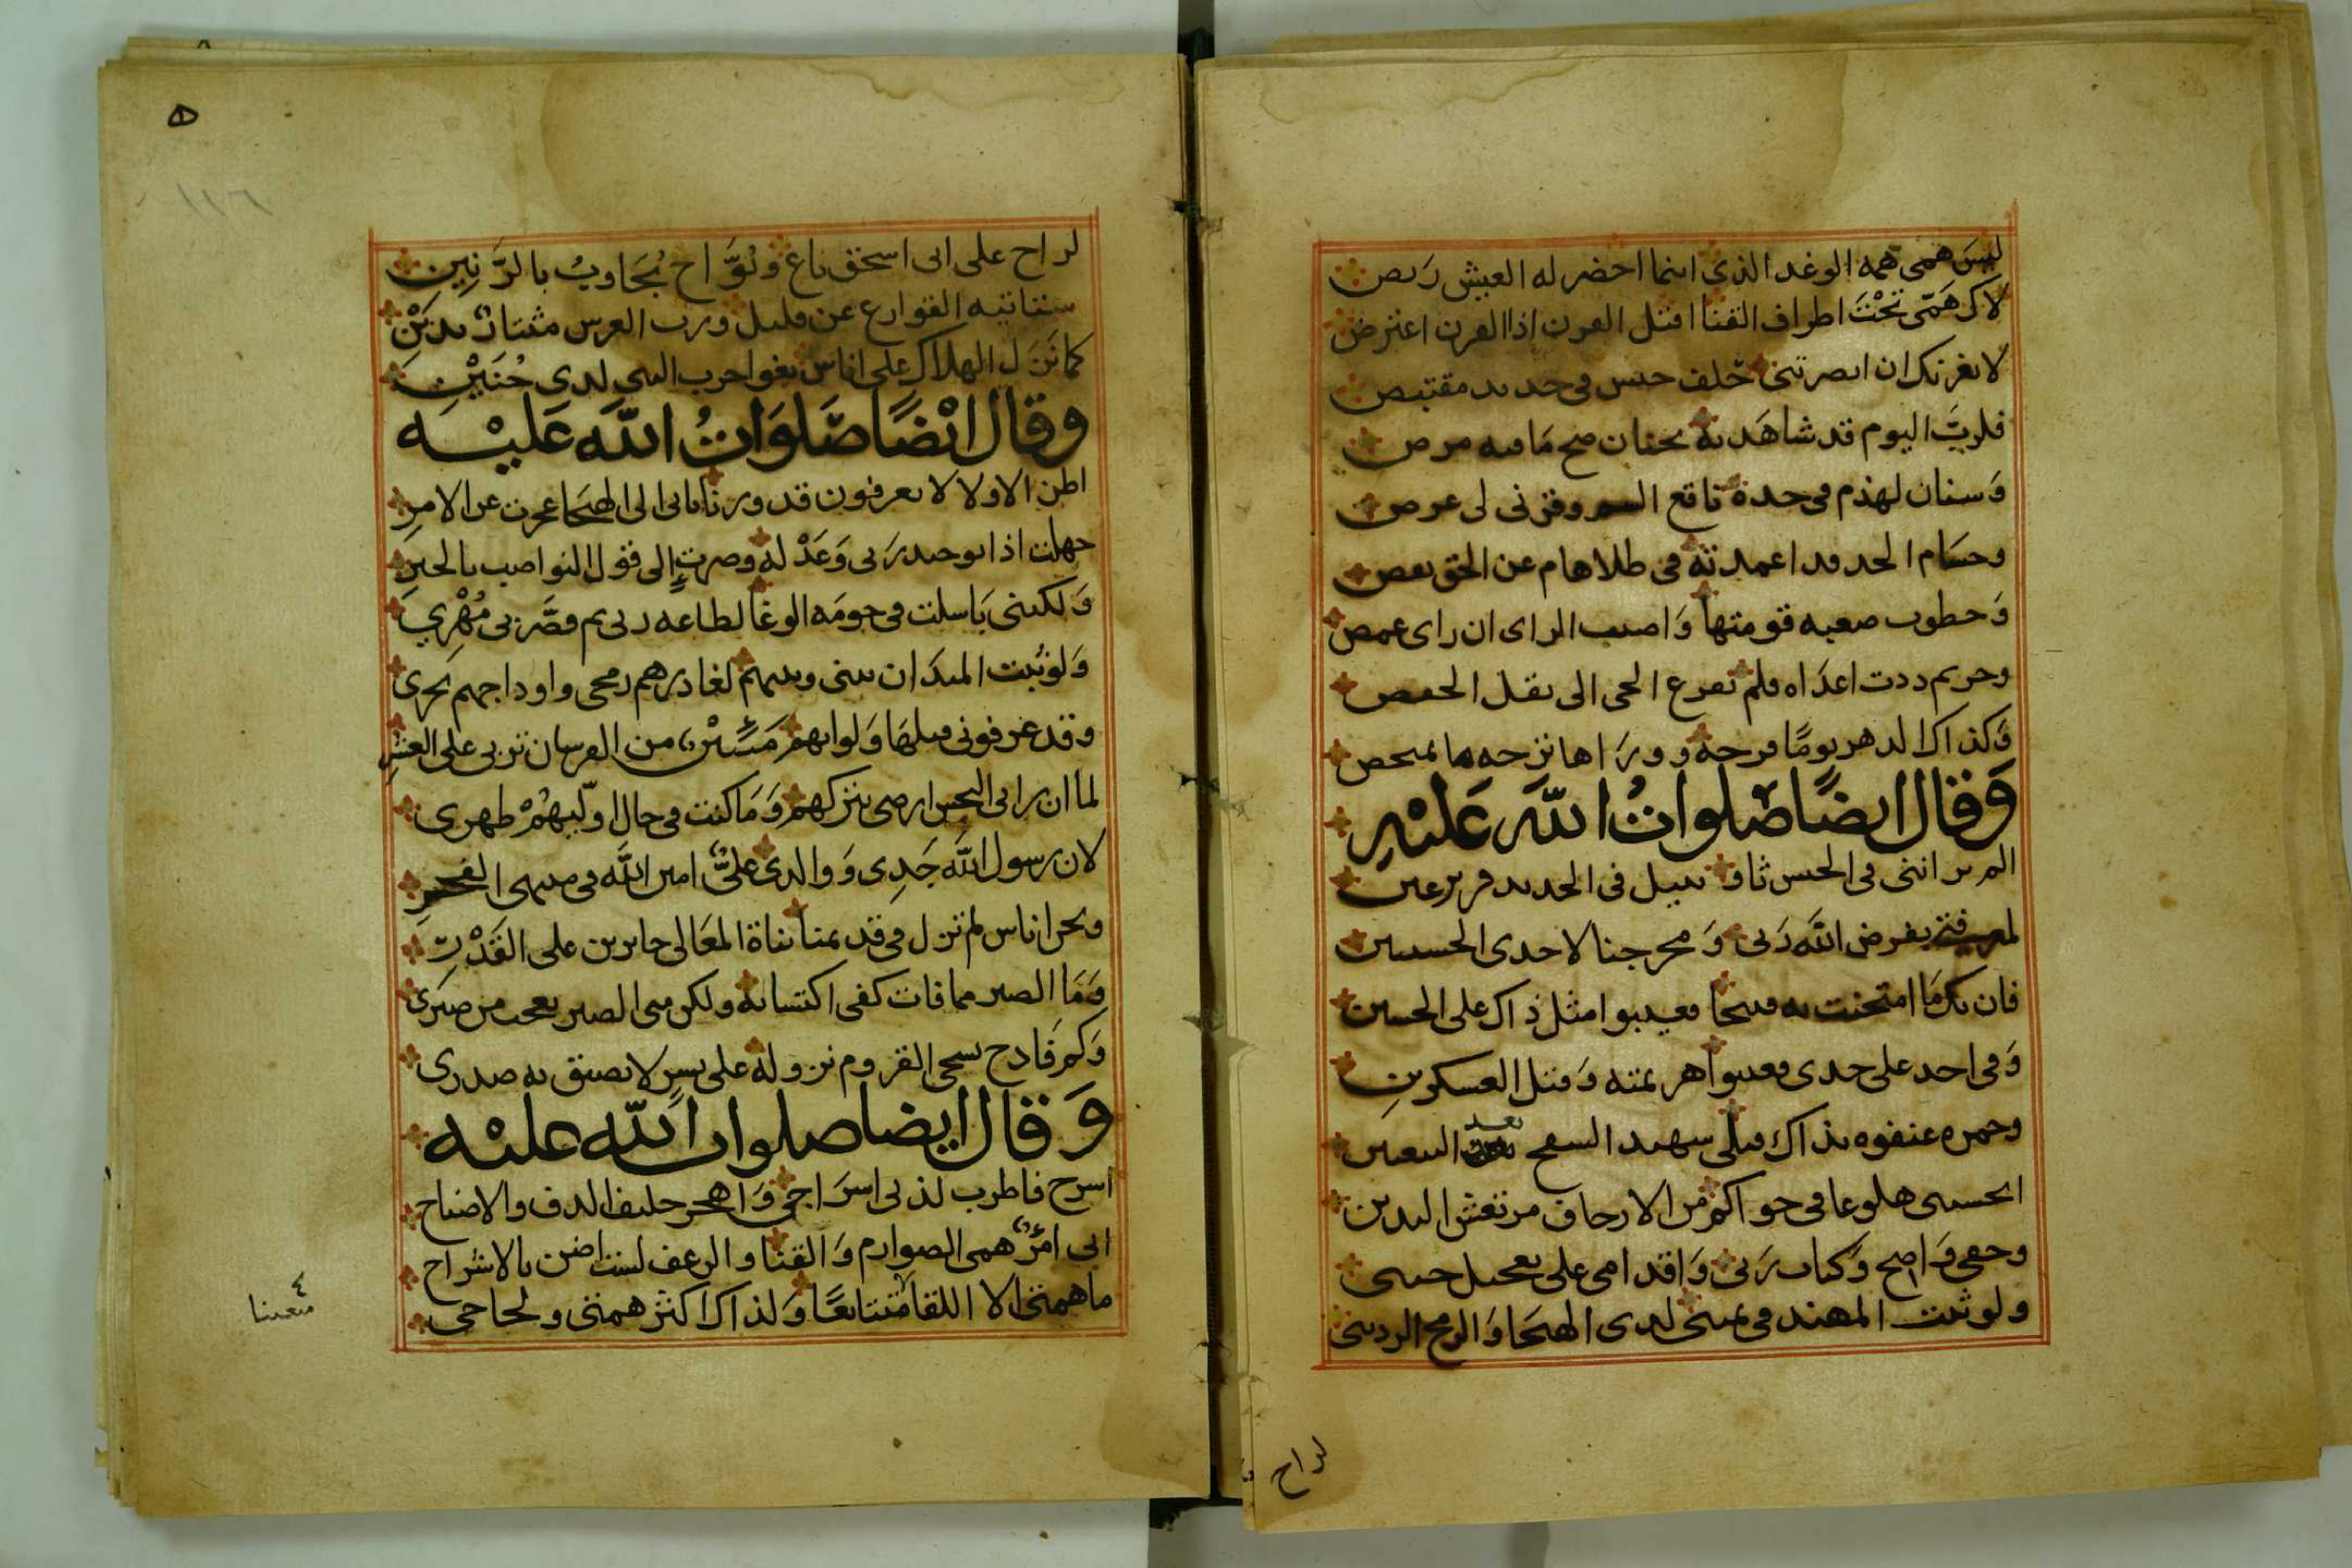 ليس همى همه الوغد الذى انما احضر له العيش ربص
لاكن همّى تحْتَ اطراف القنا اقتل القرن اذا القرن اعترض
لا يغرنك ان ابصرتنى خلف حبس فى حديد مقتبص
فلربّ اليوم قد شاهدته بجنان صح مَا فيه مرض
وَسنان لهذم فى حدة ناقع السم وقرنى لى عرض
وحسَام الحد قد اعمدته فى طلاهام عن الحق
وَخطوب صعبه قومتها وَاصيب الراى ان راى عمض
وحريم ذدت اعدَاه فلم الحمى الى نقل
وَكذاك الدهر يومًا فرحه وورَاها ترحه ما تمحص
وَقال ايضًا صَلوات الله عَليْهِ
الم تر اننى فى الحبس ثاو نبيل فى الحديد قرير عين
بفرض الله رَبى وَمخرجنا لاحدى الحسنيين
فان يك مَا امتحنت به قبيحا فعيبوا مثل ذاك على الحسين
وَفى احد على جدى فعيبوا هزيمته وَقتل العسكرين
وحمزه عنفوه بذاك قبلى شهيد السفح بعد
اتحسبنى هلوعا فى جواكم من الارجاف مرتعش اليدين
وحقى وَاضح وَكتاب رَبى وَاقدامى على تعجيل حينى
ولو ثبت المهند فى يمينى لدى الهيجا وَالرمح الردينى
لراح
لراح على ابى اسحق ناع ونُوَّاح يُجَاوبُ بالرَّنِيِن
ستاتيه القوارع عن قليل ورب العرش مثتار بدَيْن
كما نَزَل الهلاك على اناس بغوا حرب النبى لدى حُنَيْنِ
وقال ايْضًا صَلَوَاتُ اللّهَ عَليْه
اظن الاولا لا يعرفون قد ورنا بانى الى الهيجَا عجزت عن الامرِ
جهلت اذا توحيد رَبى وَعَدْله وصرت إلى قول النواصب بالجبرِ
وَلكننى بَاسلت فى حومَه الوغا لطاعه ربى ثم قصَّر بى مُهْرِي
وَلو ثبت الميدَان بينى وبينهم لغادرهم رمحى واوداجهم تجرى
وقد عرفونى قبلهَا وَلوانهم من الفرسان تربى على العشرِ
لما ان رانى الجيش ارضى بتركهم وَمَا كنت فى حال اوَلّيهُمْ ظهرى
لان رسول الله جَدِى وَوالدى علىٌّ امين الله فى منتهى الفخرِ
ونحن اناس لم نزل فى قديمنا بناة المعَالى جابرين على القَدْرِ
وَمَا الصبر مما فات كفى اكتسابه ولكن منى الصبر يعجب من صبرَى
وَكم فَادح القروم نزوله على يسير لا يضيق به صدرى
وَقال ايضا صلوات الله عليْه
اسرج فاطرب لذتى اسرَاجى وَاهجر حليف الدف والاصناج
انى امرٌ همى الصوارم وَالقنا و الزعف لست اضن بالاشراج
ما همتى الا اللقا متتابعًا وَلذاك اكثر همتى ولجاجى